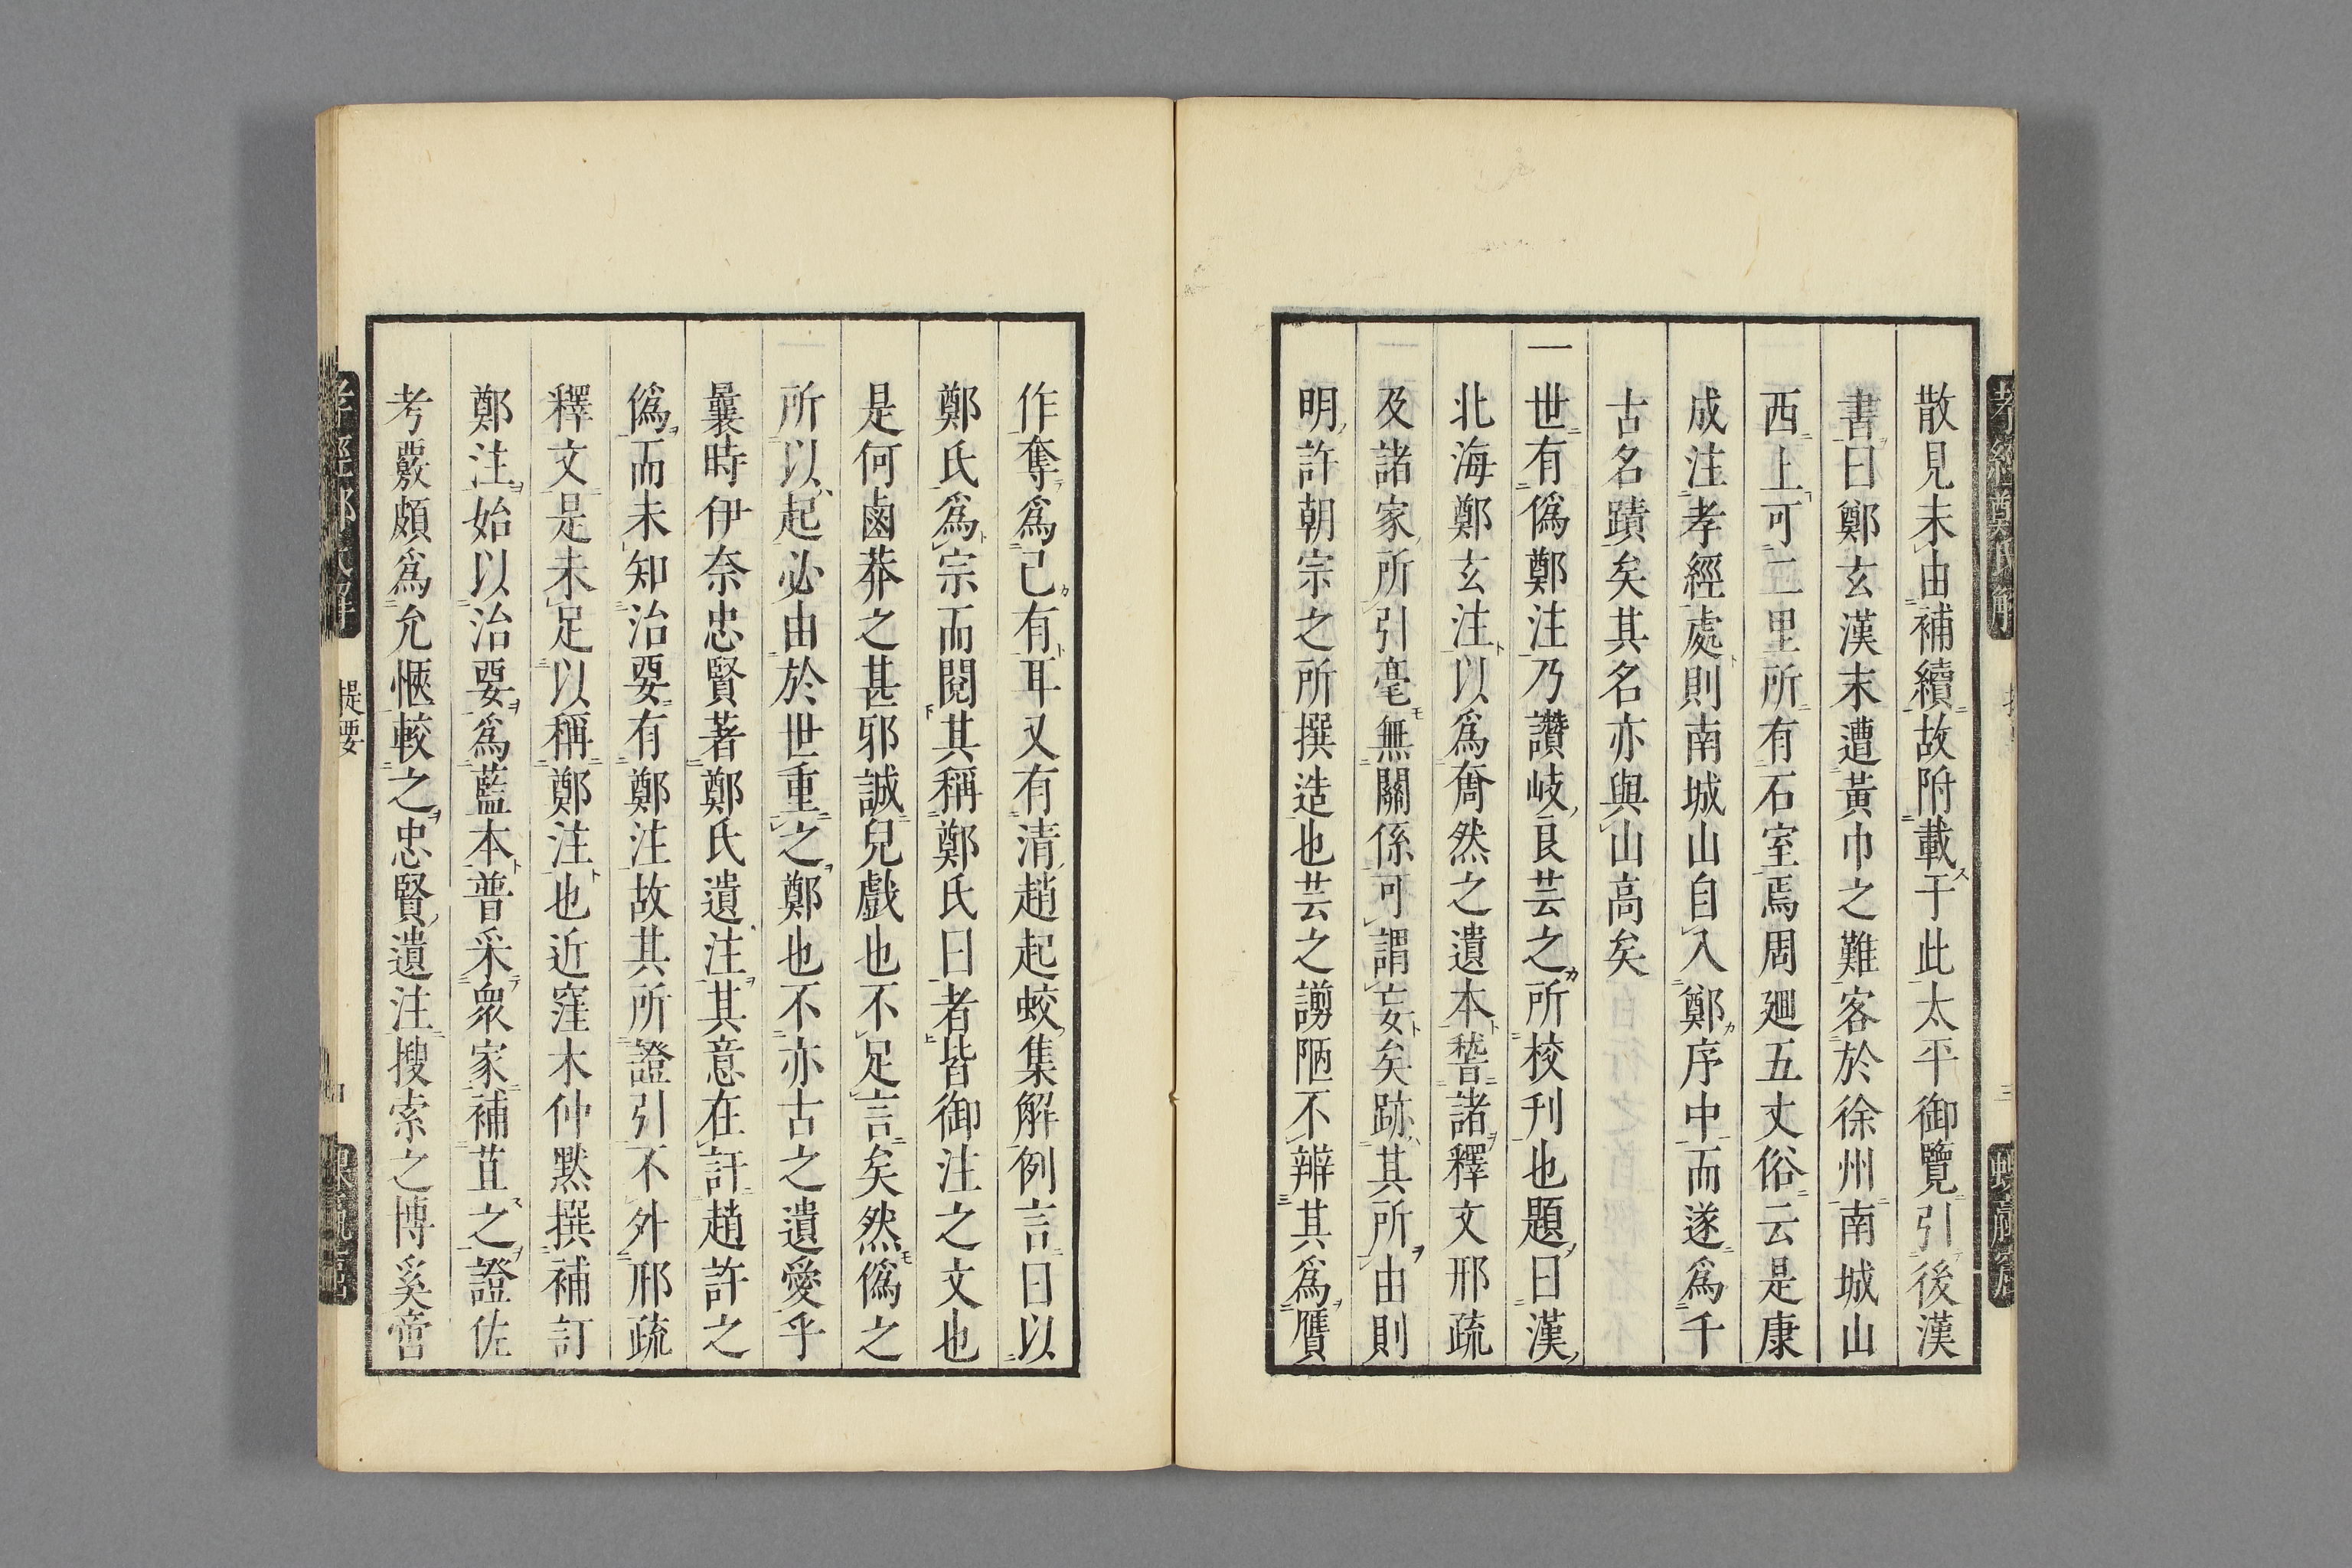 散見未由補續故附載于此太平御覽引後漢
書曰鄭玄漢末遭黃巾之難客於徐州南城山
西上可二里所有石室焉周迴五丈俗云是康
成注孝經處則南城山自入鄭序中而遂爲千
古名蹟矣其名亦與山高矣
一世有僞鄭注乃讚岐良芸之所校刊也題曰漢
北海鄭玄注以爲奝然之遺本諬諸釋文邢疏
及諸家所引毫無關係可謂妄矣跡其所由則
明許朝宗之所撰造也芸之謭陋不辨其爲贋
作奪爲己有耳又有清趙起蛟集解例言曰以
鄭氏爲宗而閱其稱鄭氏曰者皆御注之文也
是何鹵莽之甚邪誠兒戲也不足言矣然僞之
所以起必由於世重之鄭也不亦古之遺愛乎
曩時伊奈忠賢著鄭氏遺注其意在訐趙許之
僞而未知治要有鄭注故其所證引不外邢疏
釋文是未足以稱鄭注也近窪木仲默撰補訂
鄭注始以治要爲藍本普采衆家補苴之證佐
考覈頗爲允愜較之忠賢遺注搜索之博奚啻
提要